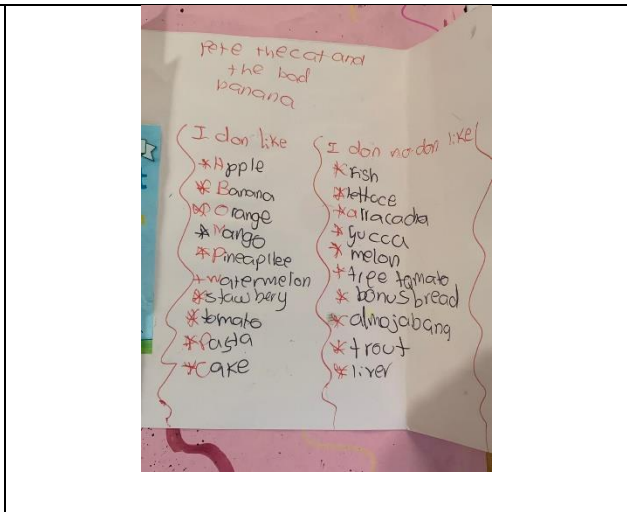 Pete the cat and
the bad
banana
I don like
*Apple
*Banana
*Orange
*Mango
*Pineapllee
*watermelon
*stawbery
*tomato
*Pasta
*Cake
I don no don like
*Fish
*lettoce
*arracacha
*yucca
*melon
*tree tomato
*bonus bread
*almojabang
*trout
*liver